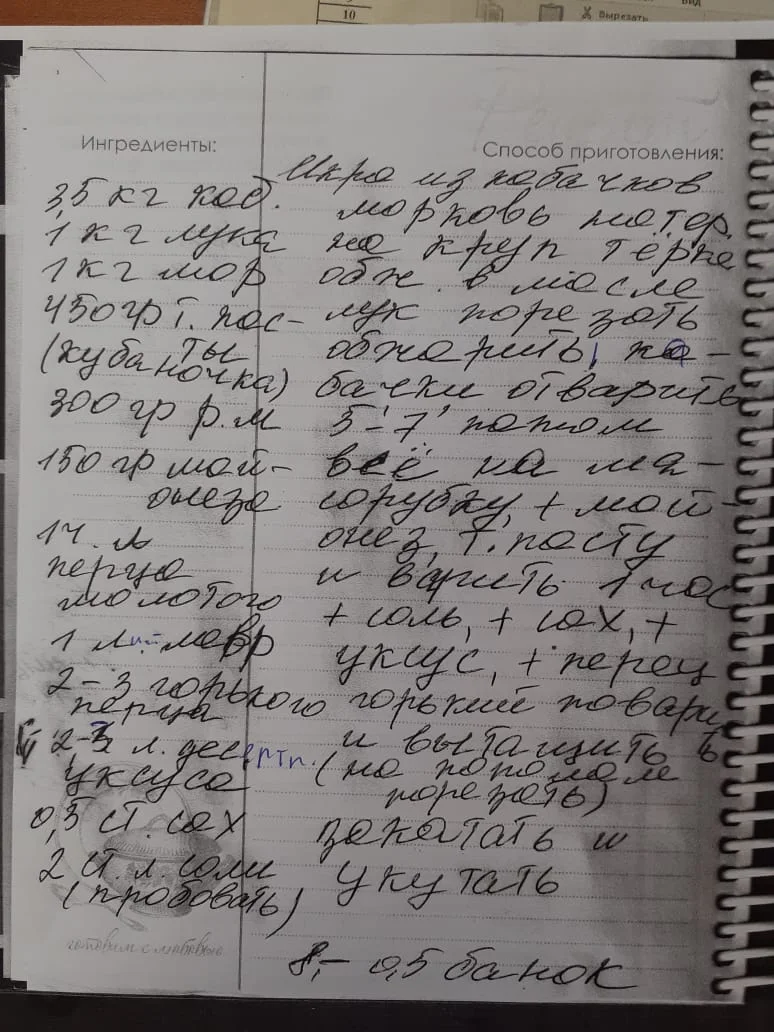 10
Вырезать
Ингредиенты:
3,5 кг каб.
1 кг лука
1 кг мор
450 гр т. пас-
ты
(кубаночка)
300 гр р.м
150 гр май-
онеза
1 ч. л
перца
молотого
1 лист лавр
2-3 горького
перца
2-3 л. десертн.
уксуса
0,5 ст. сах
2 ст. л. соли
(пробовать)
готовим с любовью
Способ приготовления:
Икра из кабачков
морковь натер.
на круп тёрке
обж. в масле
лук порезать
обжарить, ка-
бачки отварить
5-7' потом
всё на мя-
сорубку, + май-
онез, т. пасту
и варить 1 час
+ соль, + сах, +
уксус, + перец
горький поварить
и вытащить
(не пополам
порезать)
закатать и
укутать
8,- 0,5 банок